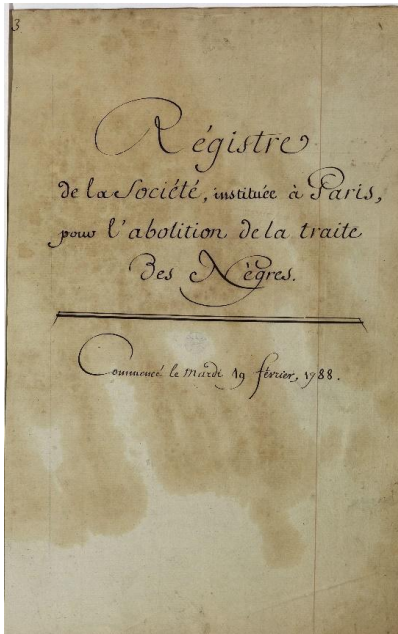 3
Régistre
de la Société, instituée à Paris,
pour l'abolition de la traite
Des Nègres.
Commencé le Mardi 19 février, 1788.